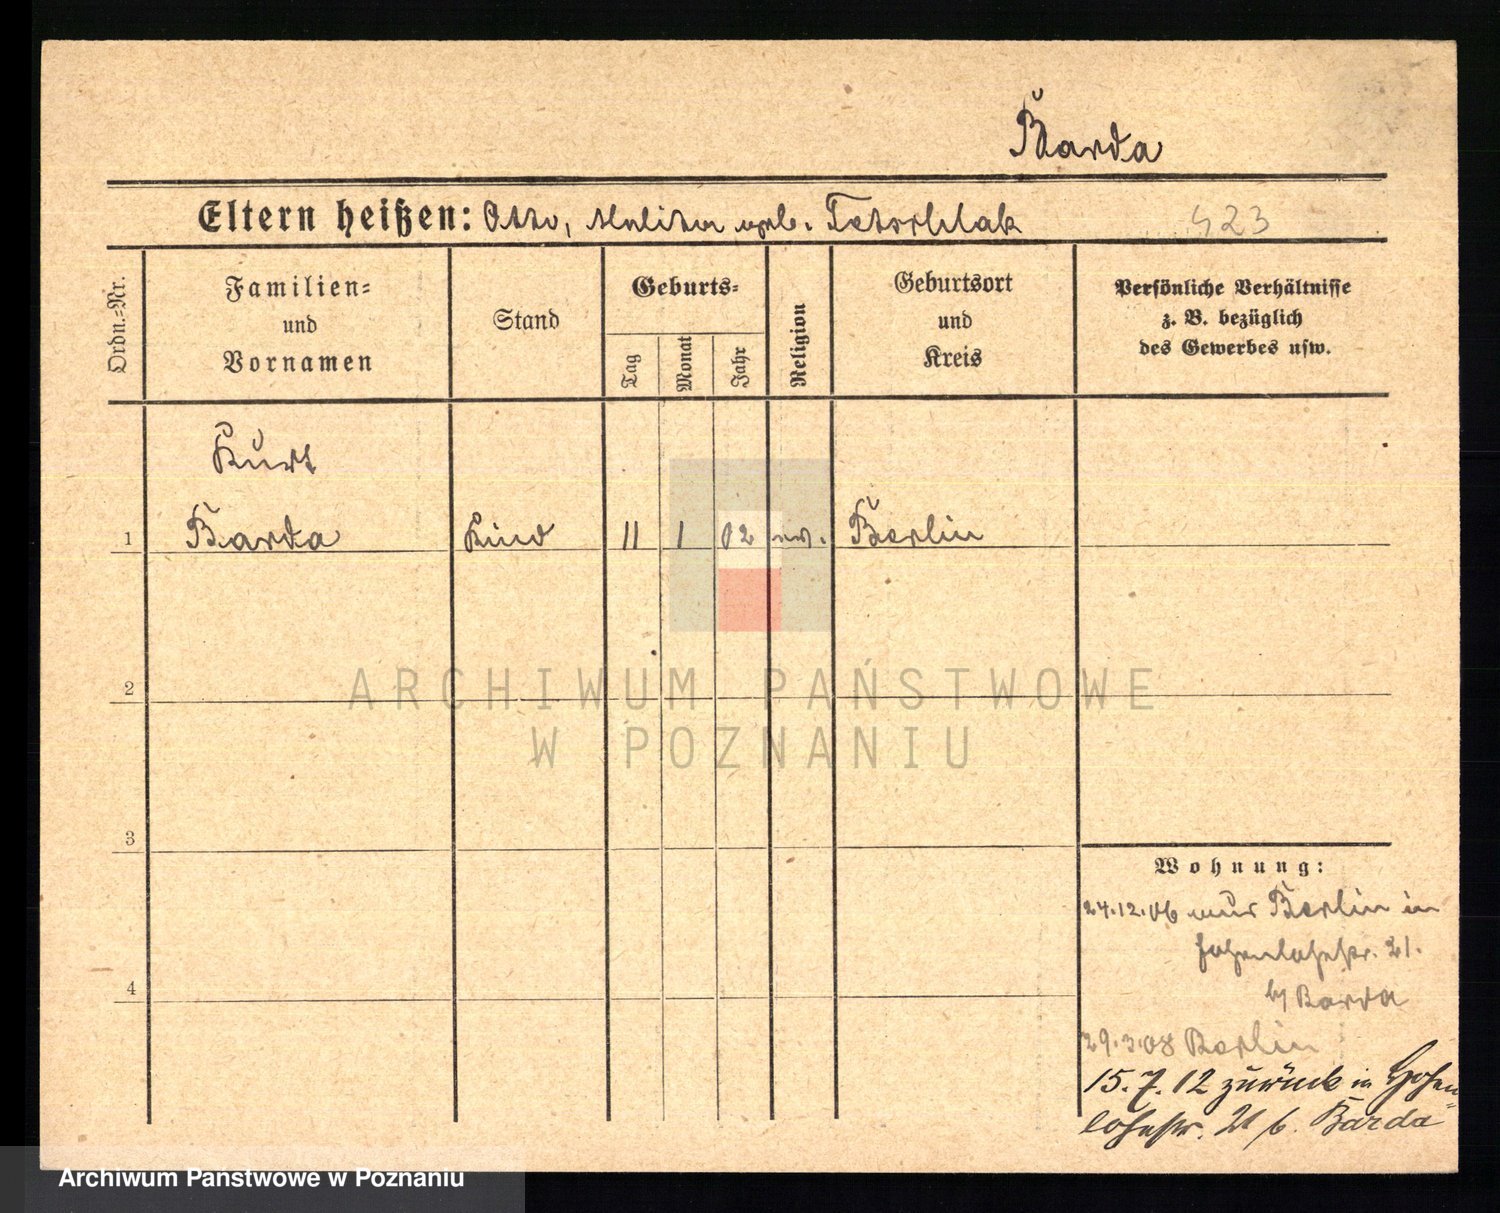 Barda
Eltern heißen: Otto, geb.
423
Ordn.-Nr.
Familien-
und
Vornamen
Stand
Geburts-
Tag
Monat
Jahr
Religion
Geburtsort
und
Kreis
Persönliche Verhältnisse
z. B. bezüglich
des Gewerbes usw.
Kurt
1 Barda Kind 11 1 02 ev. Berlin
2
3
4
Wohnung:
24.12.06 aus Berlin in
Hohenlohestr. 21.
bei Barda
29.3.08 Berlin
15.7.12 zurück in Hohen-
lohestr. 21 b. Barda
ARCHIWUM PAŃSTWOWE
W POZNANIU
Archiwum Państwowe w Poznaniu